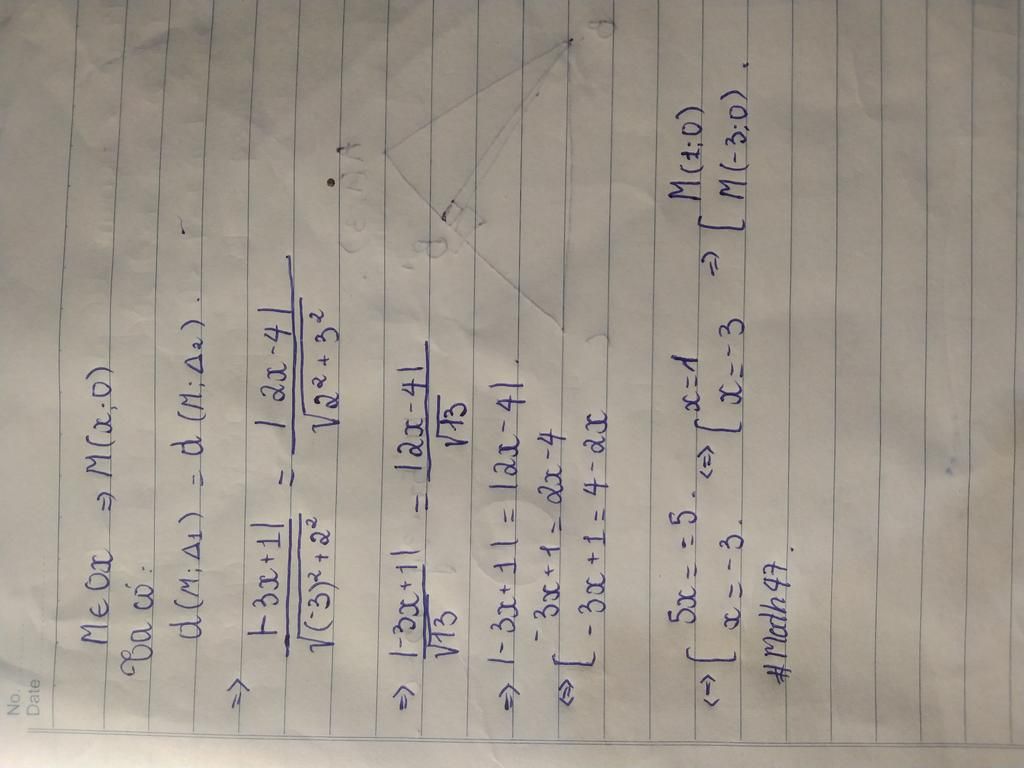 No.
Date
M ∈ Ox => M(x;0)
Ta có:
d(M;Δ1) = d(M;Δ2).
=> |-3x+1| / √((-3)²+2²) = |2x-4| / √(2²+3²)
=> |-3x+1| / √13 = |2x-4| / √13
=> |-3x+1| = |2x-4|.
<=> [ -3x+1 = 2x-4
-3x+1 = 4-2x
<=> [ 5x = 5. <=> [ x=1 => [ M(1;0)
x = -3. x = -3 M(-3;0).
#Math47.